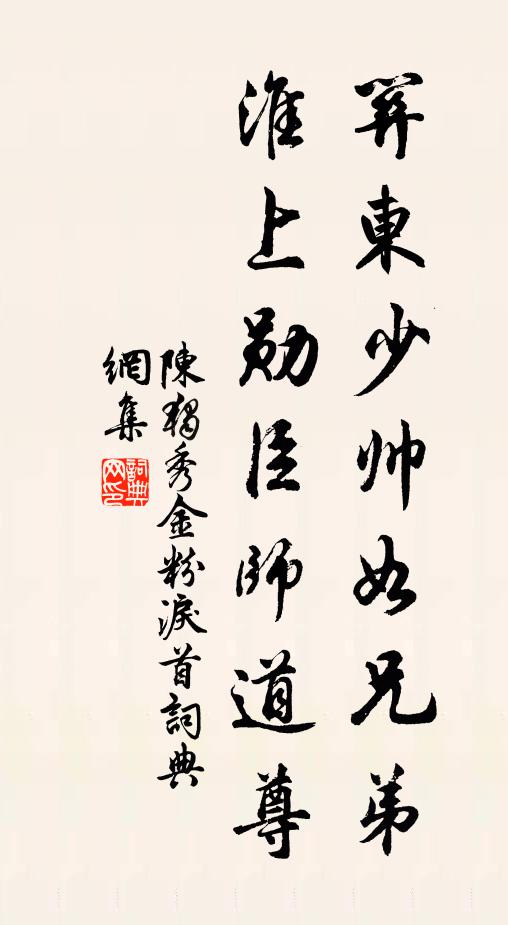 關東少帥如兄弟
淮上勛臣師道尊
陳獨秀金粉淚首詞典
網集
詞典網印